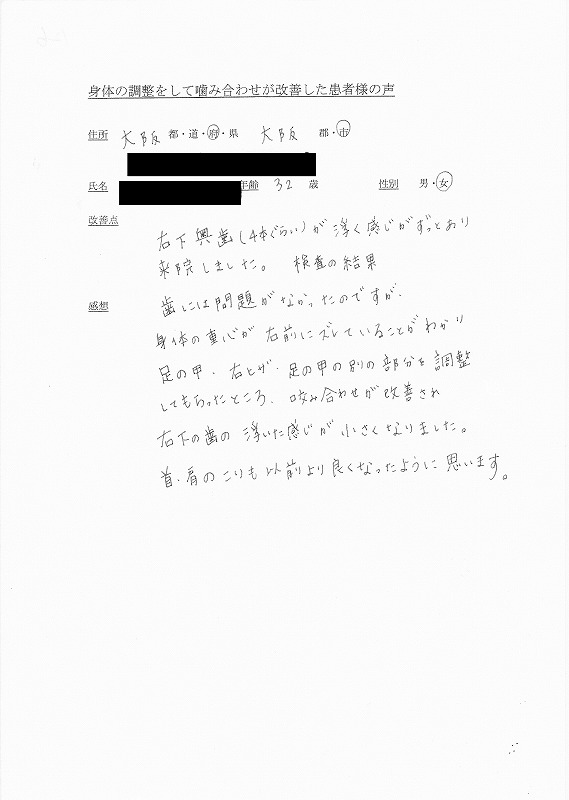 身体の調整をして噛み合わせが改善した患者様の声
住所 大阪 都・道・府・県 大阪 郡・市
氏名 年齢 32 歳 性別 男・女
改善点
右下奥歯(4本ぐらい)が浮く感じがずっとあり
来院しました。 検査の結果
感想
歯には問題がなかったのですが、
身体の重心が右前にズレていることがわかり
足の甲・右ヒザ・足の甲の別の部分を調整
してもらったところ、咬み合わせが改善され
右下の歯の浮いた感じが小さくなりました。
首・肩のこりも以前より良くなったように思います。